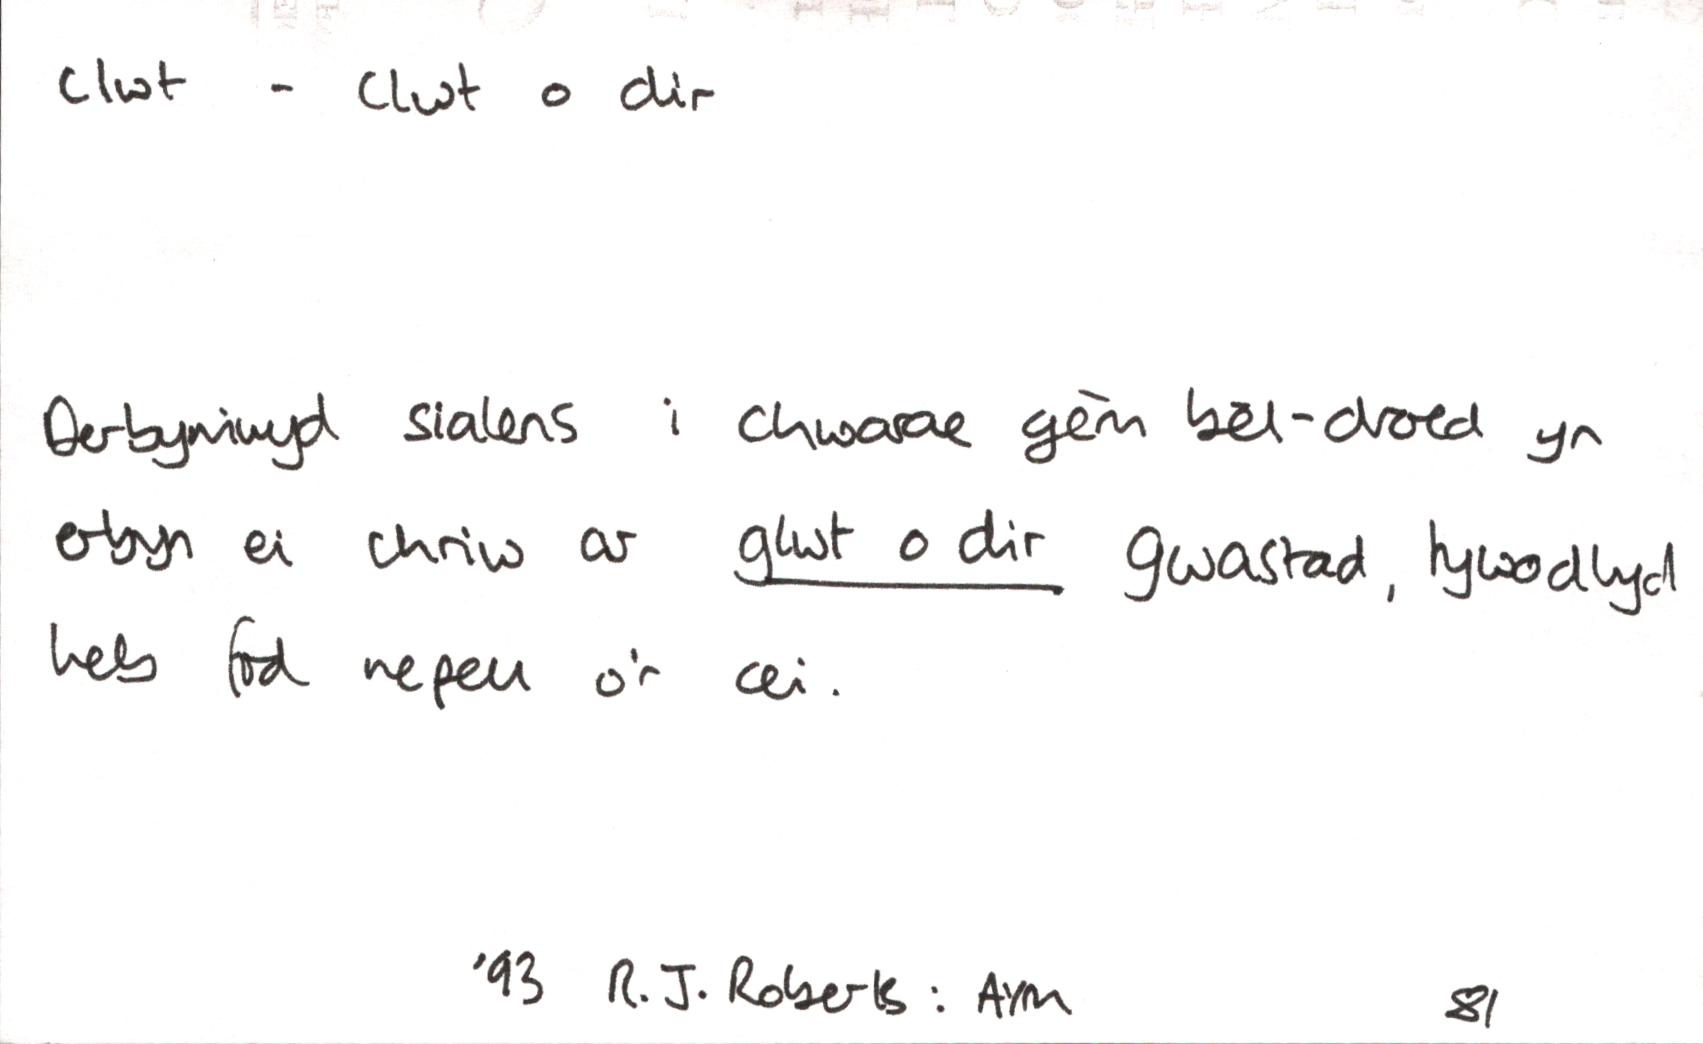 clwt - clwt o dir
Derbyniwyd sialens i chwarae gêm bêl-droed yn
erbyn ei chriw ar glwt o dir gwastad, tywodlyd
heb fod nepell o'r cei.
'93 R. J. Roberts: AYM 81